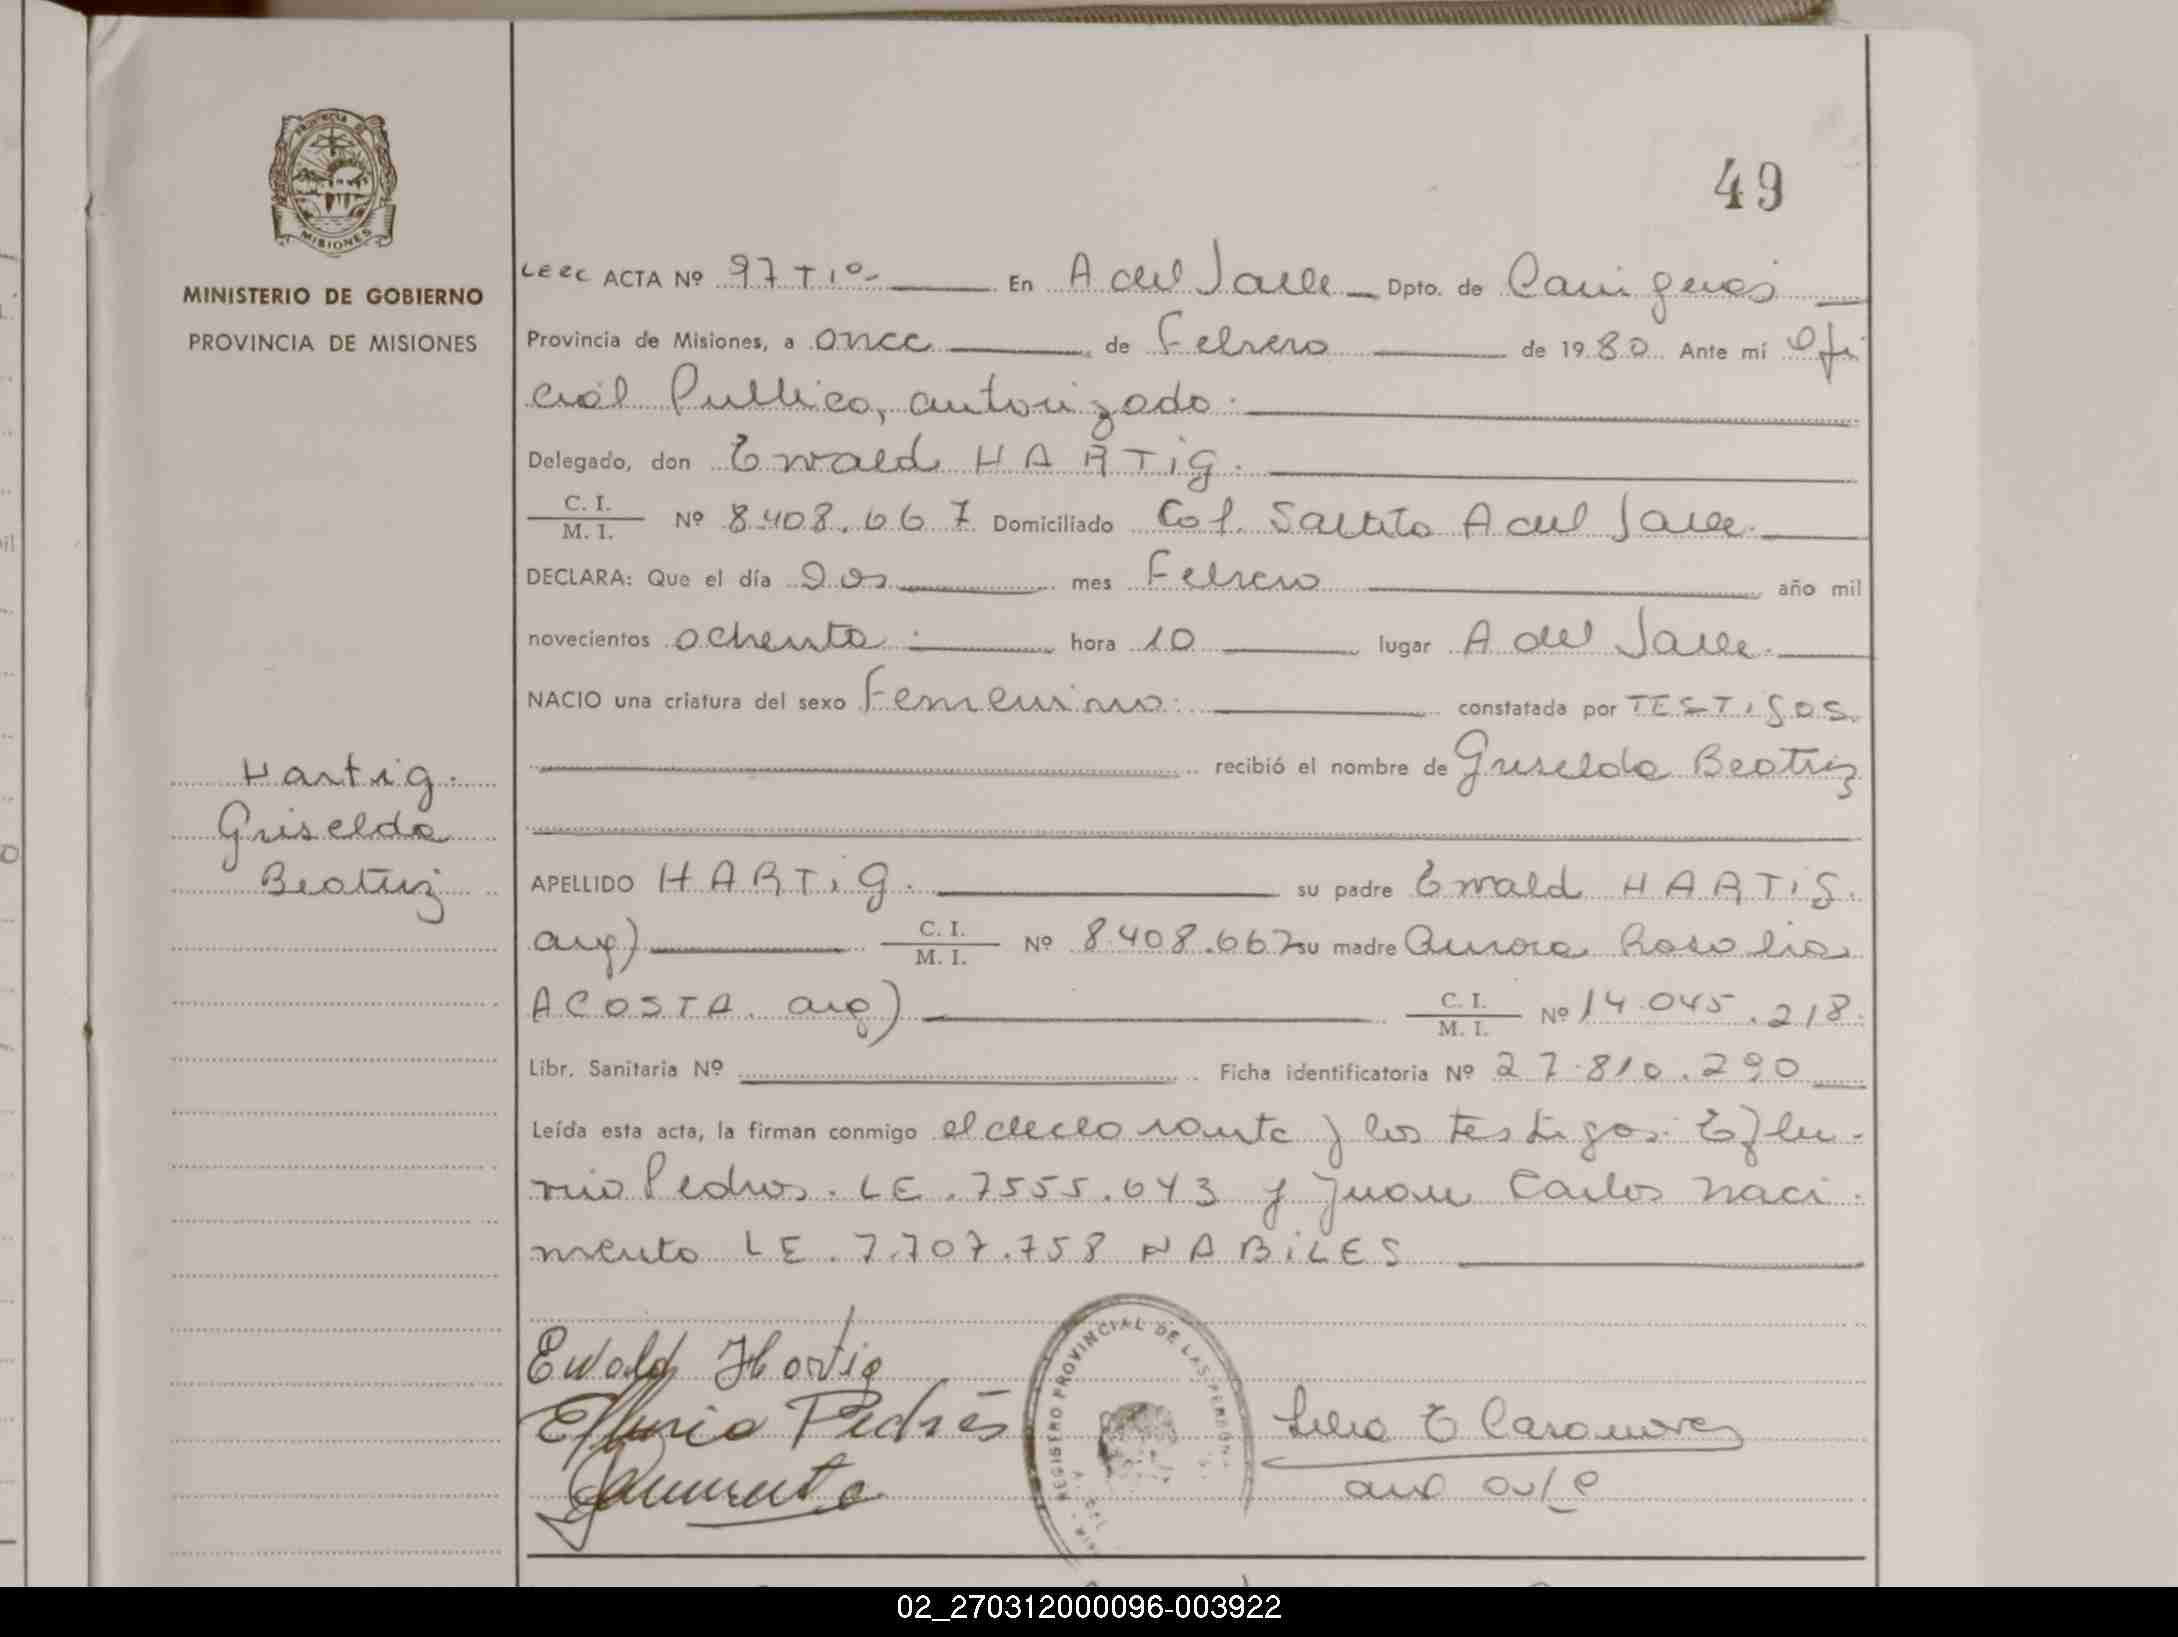 49
PROVINCIA DE
MISIONES
MINISTERIO DE GOBIERNO
PROVINCIA DE MISIONES
ACTA Nº 97 T 1º En A del Valle Dpto. de Cainguas
Provincia de Misiones, a once de Febrero de 1980 Ante mí Ofi
cial Publico, autorizado.
Delegado, don Ewald HARTiG.
C. I.
M. I. Nº 8.408.667 Domiciliado Col. Saltito A del Valle.
DECLARA: Que el día Dos mes Febrero año mil
novecientos ochenta. hora 10 lugar A del Valle.
NACIO una criatura del sexo Femenino. constatada por TESTiGOS.
recibió el nombre de Griselda Beatriz
Hartig.
Griselda
Beatriz
APELLIDO HARTiG. su padre Ewald HARTiG.
arg) C. I.
M. I. Nº 8.408.667 su madre Aurora Rosalia
ACOSTA. arg) C. I.
M. I. Nº 14.045.218.
Libr. Sanitaria Nº Ficha identificatoria Nº 27.810.290
Leída esta acta, la firman conmigo el declarante y los testigos. Eflu-
rio Pedros. LE. 7555.643 y Juan Carlos Naci-
miento LE. 7.707.758 HABiLES
Ewald Hartig
REGISTRO PROVINCIAL DE LAS PERSONAS
02_270312000096-003922